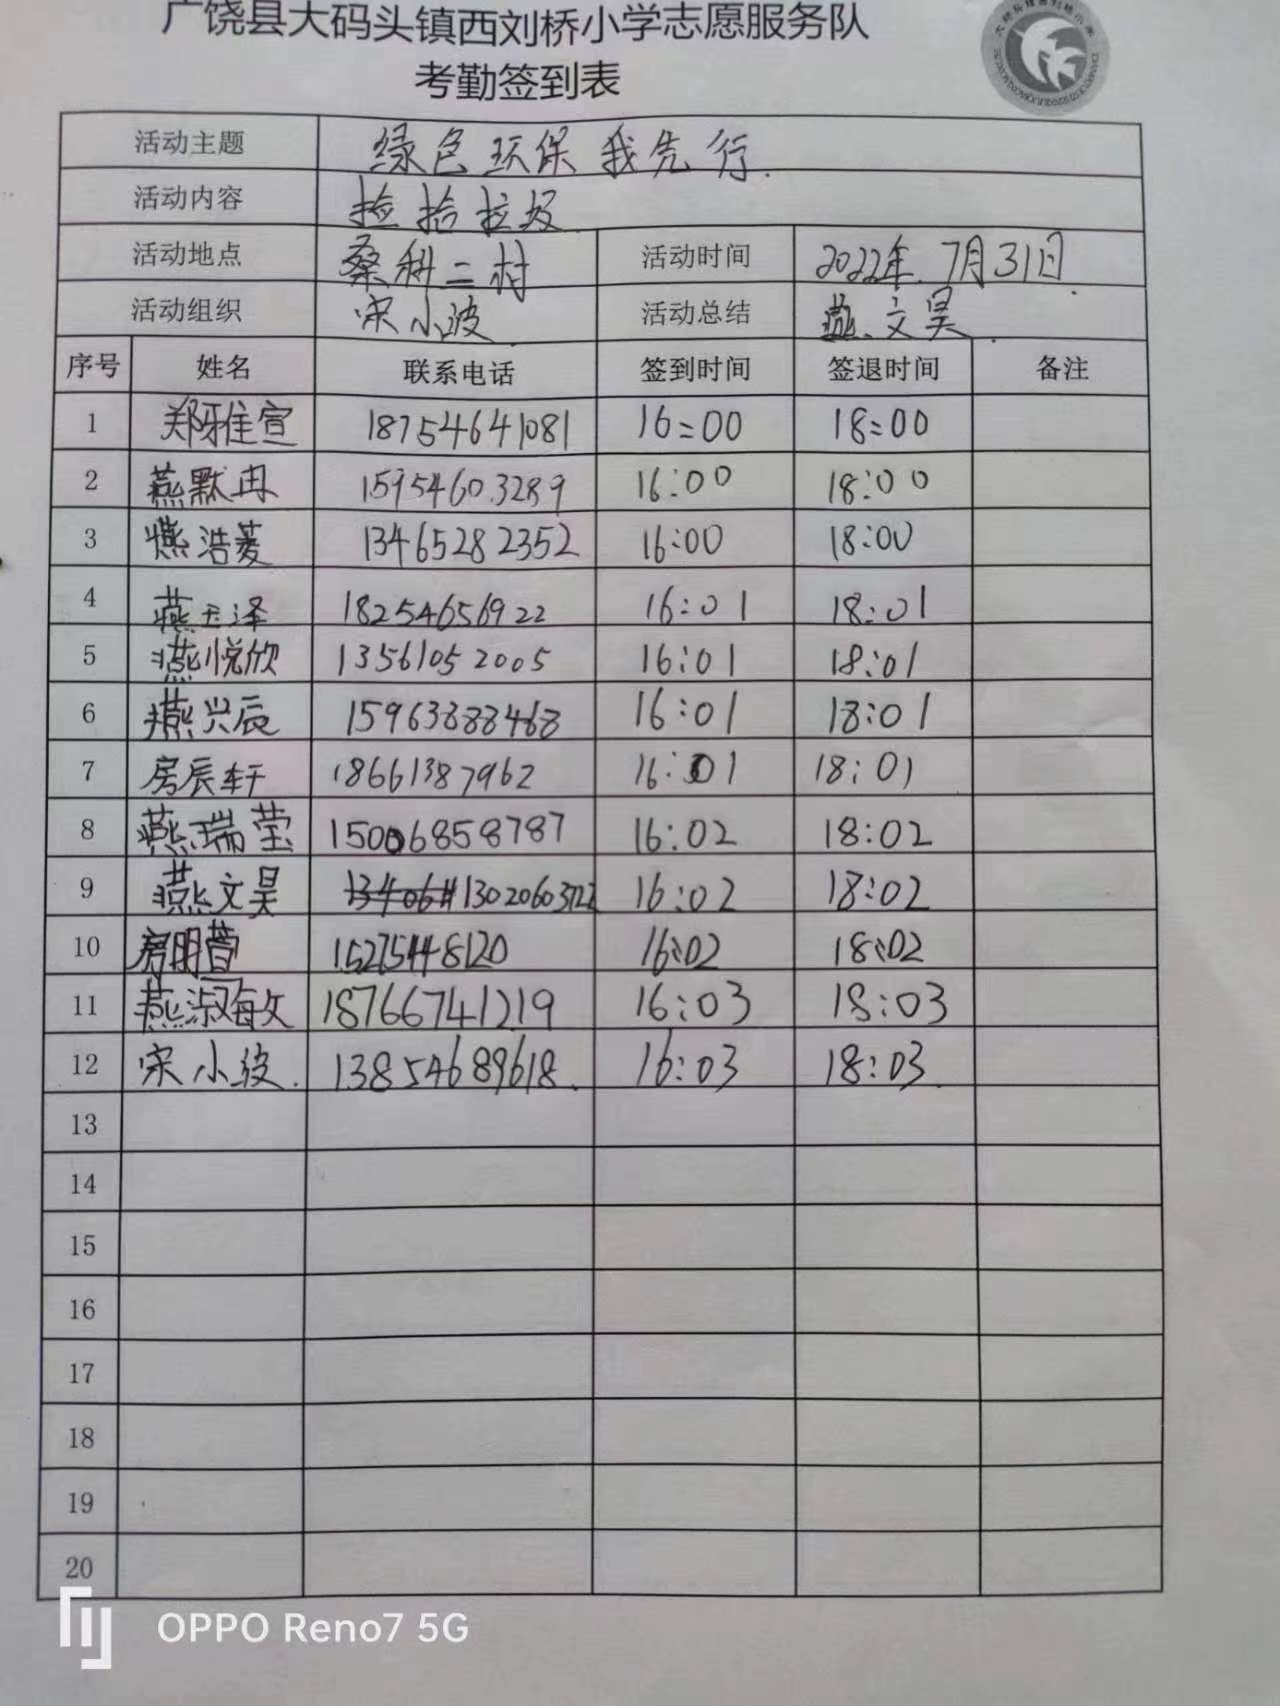 广饶县大码头镇西刘桥小学志愿服务队
考勤签到表
活动主题 绿色环保我先行.
活动内容 捡拾垃圾
活动地点 桑科二村 活动时间 2022年.7月31日.
活动组织 宋小波. 活动总结 燕文昊.
序号 姓名 联系电话 签到时间 签退时间 备注
1 郑雅宣 18754641081 16:00 18:00
2 燕默冉 15954603289 16:00 18:00
3 燕浩菱 13465282352 16:00 18:00
4 燕玉泽 18254656922 16:01 18:01
5 燕悦欣 13561052005 16:01 18:01
6 燕兴辰 15963888468 16:01 18:01
7 房辰轩 18661387962 16:01 18:01
8 燕瑞莹 15006858787 16:02 18:02
9 燕文昊 16:02 18:02
10 房明萱 15275448120 16:02 18:02
11 燕淑敏 18766741219 16:03 18:03
12 宋小波. 13854689618. 16:03 18:03.
13
14
15
16
17
18
19
20
OPPO Reno7 5G